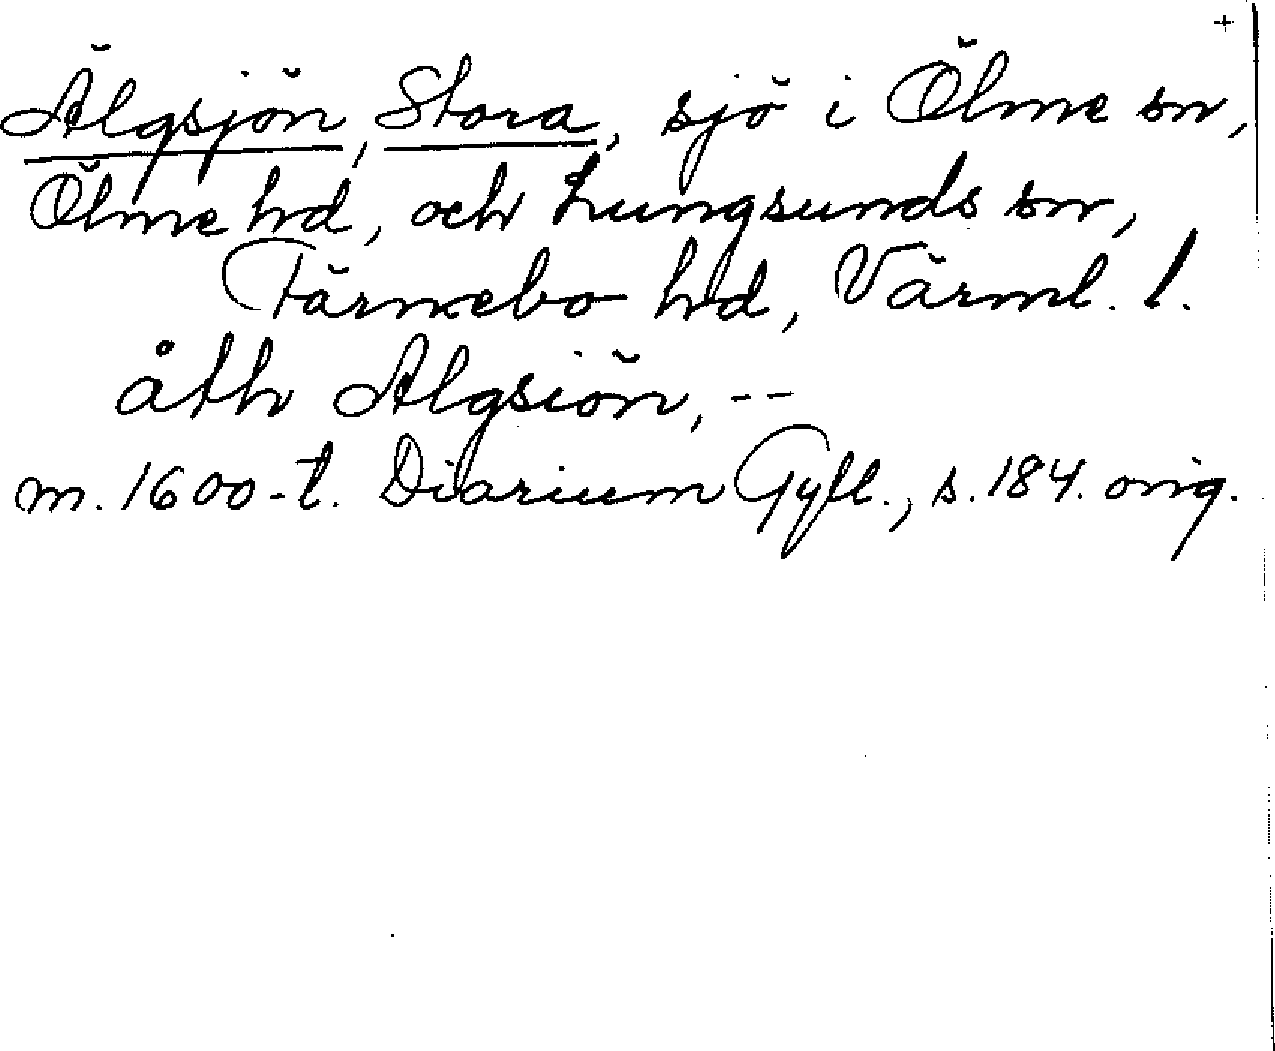 +
Älgsjön, Stora, sjö i Ölme sn,
Ölme hd, och Lungsunds sn,
Färnebo hd, Värml. l.
åth Algsiön, --
m. 1600-t. Diarium Gyll., s. 184. orig.